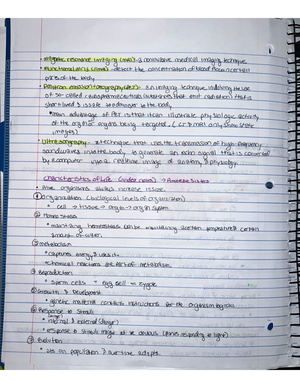 • Magnetic resonance imaging (MRI) - a noninvasive medical imaging technique
• Functional MRI (fMRI) - detect the concentration of blood flow in certain
parts of the body.
• Positron emission tomography (PET) - is an imaging technique involving the use
of so-called radiopharmaceuticals (substances that emit radiation) that is
short-lived & is safe to administer to the body.
• main advantage of PET is that it can illustrate physiologic activity
of the organ or organs being targeted. (CT & MRI only show static
images)
• Ultrasonography - technique that uses the transmission of high-frequency
sound waves into the body to generate an echo signal that is converted
by a computer into a realtime image of anatomy & physiology.
Characteristics of Life → Amoeba Sisters
• Alive organisms
① Organization (biological levels of organization)
• cell → tissue → organ → organ system
② Homeostasis
• maintaining
③ Metabolism
• captures energy & uses it
• chemical reactions are part of metabolism.
④ Reproduction
• sperm cells egg cell
⑤ Growth & Development
• genetic material contains instructions for the
⑥ Response to Stimuli
• internal & external
• response to stimuli might not be obvious (plants responding to light)
⑦ Evolution
• population over time